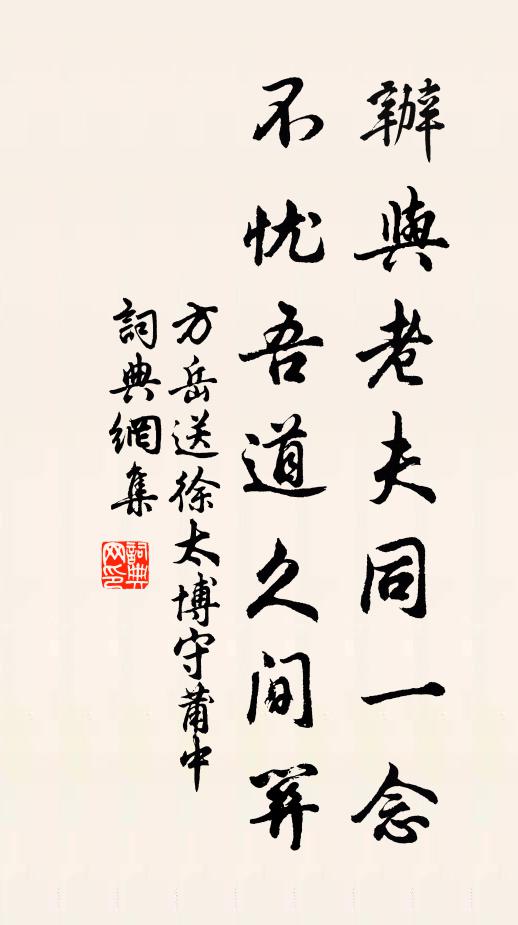 辦與老夫同一念
不忧吾道久间
方岳送徐太博守莆中
詞典網集
詞典网印